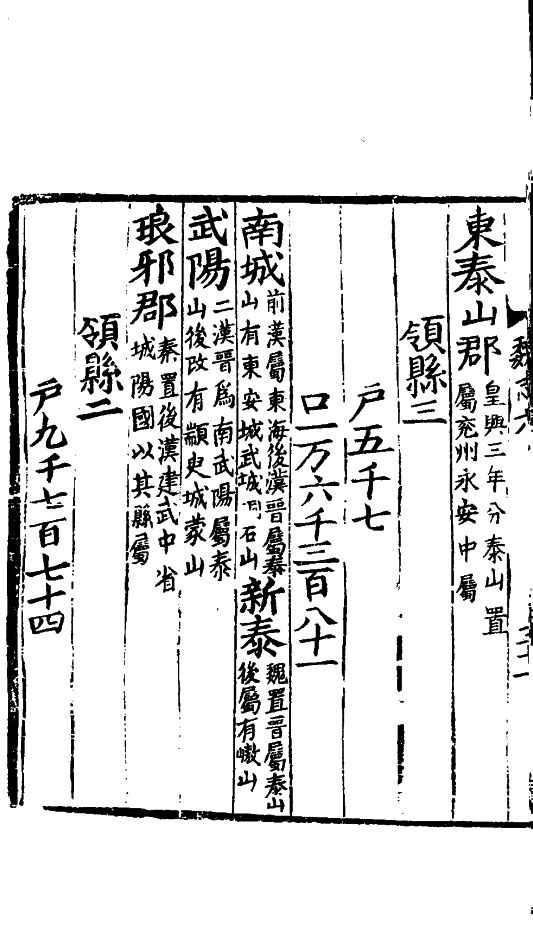 魏志六
東泰山郡皇興三年分泰山置屬兖州永安中屬
領縣三
户五千七
口一万六千三百八十一
南城前漢屬東海後漢晉屬泰山有東安城武城石山新泰魏置晉屬泰山後屬有嶅山
武陽二漢晉爲南武陽屬泰山後改有顓臾城蒙山
琅邪郡秦置後漢建武中省城陽國以其縣屬
領縣二
户九千七百七十四